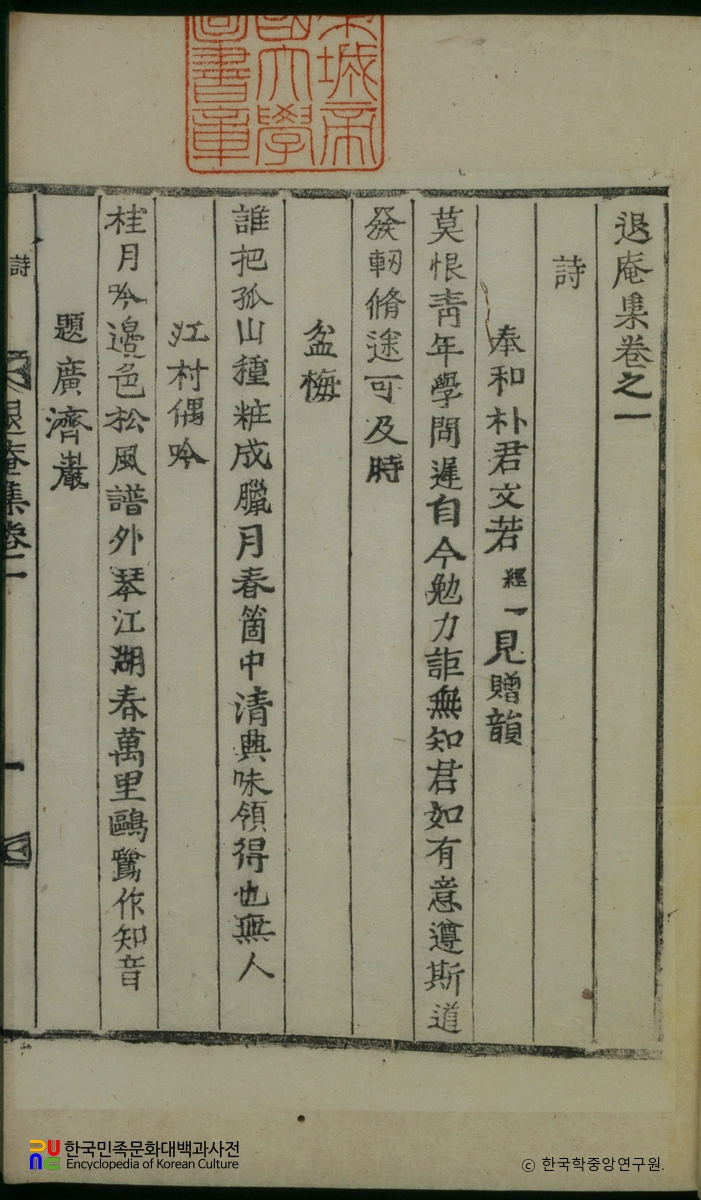 退庵集卷之一
詩
奉和朴君文若經一見贈韻
莫恨靑年學問遲自今勉力詎無知君如有意遵斯道
發軔脩途可及時
盆梅
誰把孤山種粧成臘月春箇中清興味領得也無人
江村偶吟
桂月吟邊色松風譜外琴江湖春萬里鷗鷺作知音
題廣濟巖
詩
退庵集卷一
一
城帝
國大學
圖書章
한국민족문화대백과사전
Encyclopedia of Korean Culture
ⓒ 한국학중앙연구원.